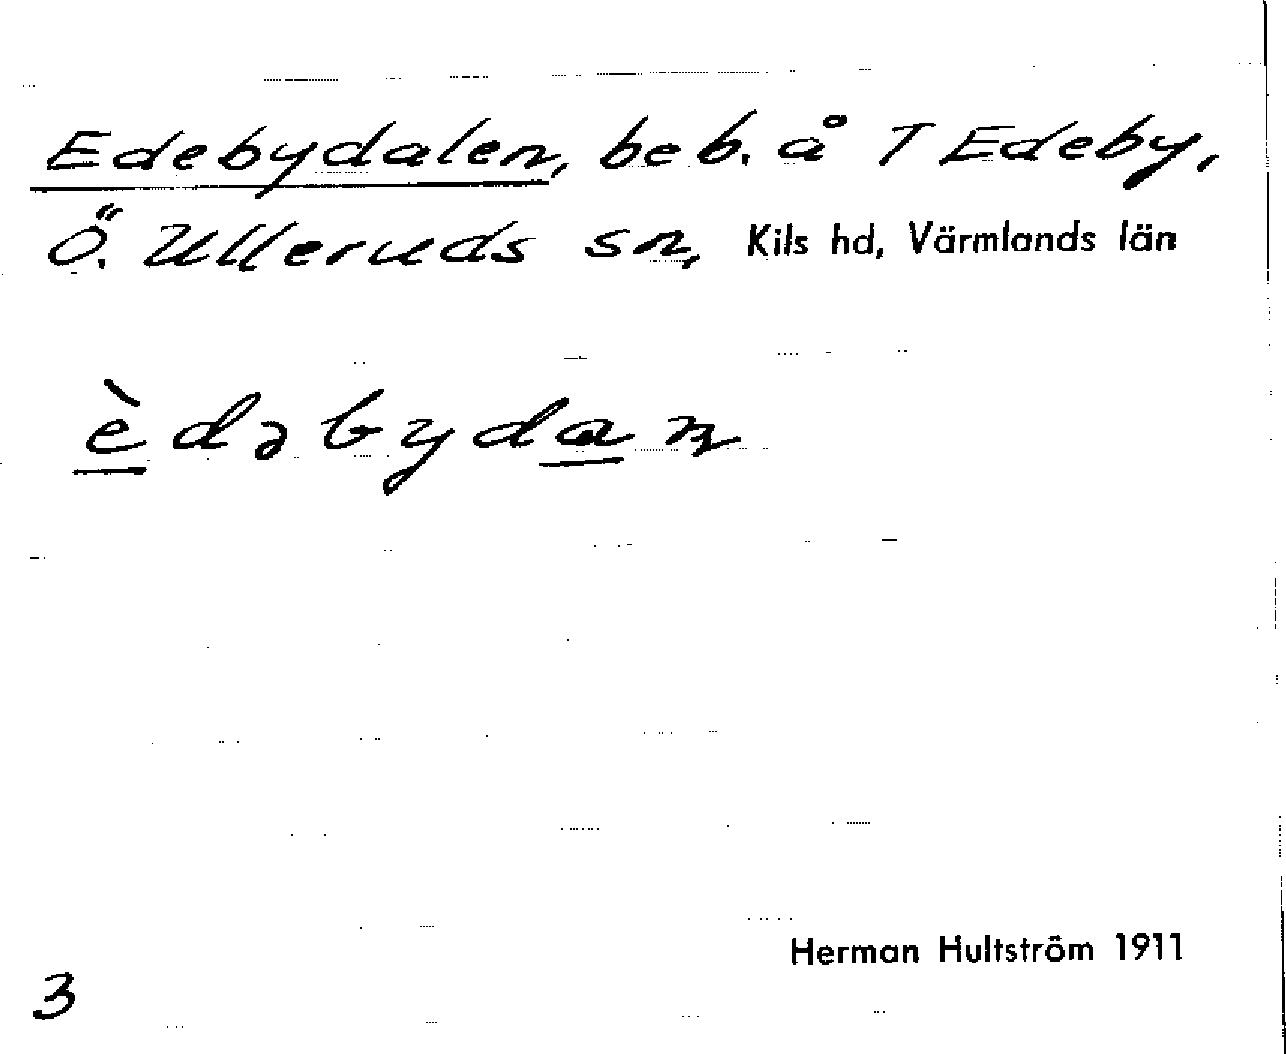 Edebydalen, beb. å T Edeby,
Ö. Ulleruds sn, Kils hd, Värmlands län
èdəbydan
Herman Hultström 1911
3